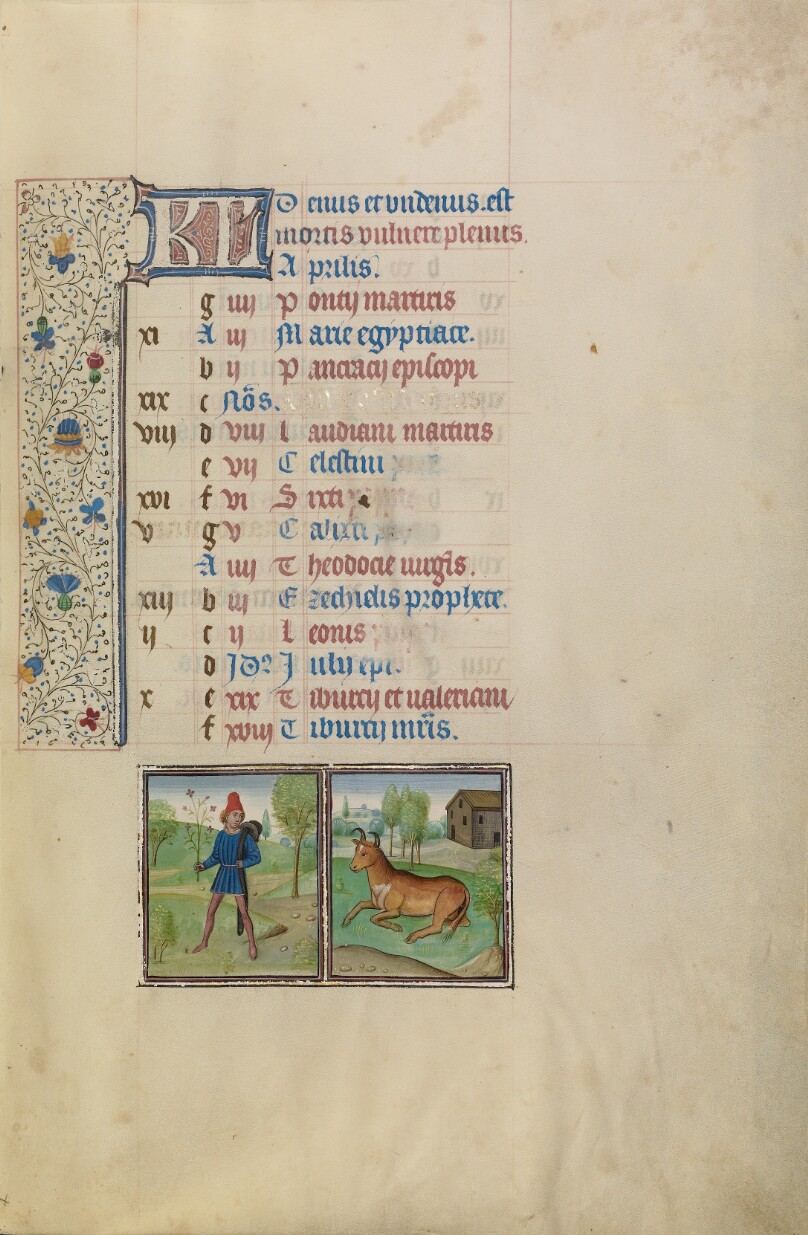 KL Denus et undenus. est
mortis vulnere plenus.
Aprilis.
g iiij Pontij martiris
xi A iij Marie egyptiace.
b ij Pancracij episcopi
xix c Nōs.
viij d viij Laudiani martiris
e vij Celestini
xvi f vi Sixti
v g v Calixti
A iiij Theodocie uirgīs.
xiij b iij Ezechielis prophete.
ij c ij Leonis
d Id9 Julij epi.
x e xix Tiburcij et ualeriani
f xviij Tiburcij mr̄is.